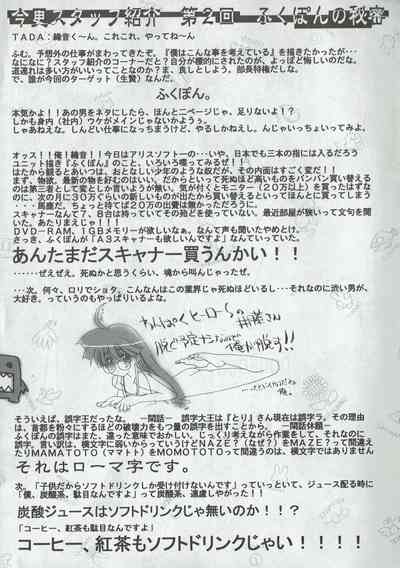 今更スタッフ紹介　第2回　ふくぽんの秘密
ＴＡＤＡ：綾音く～ん。これこれ、やってね～ん
ふむ。予想外の仕事がまわってきたぞ。『僕はこんな事を考えている』を描きたかったが…
なになに？スタッフ紹介のコーナーだと？自分が標的にされたのが、よっぽど悔しいのだな。
道連れは多い方がいいってことなのか？ま、良しとしよう。部長特権だしな。
で、誰が今回のターゲット（生贄）なんだ。
ふくぽん。
本気かよ！！あの男をネタにしたら、ほんと二ページじゃ、足りないよ！？
しかも身内（社内）ウケがメインじゃないかようぅ。
しゃあねえな。しんどい仕事になっちまうけど、やるしかねえし。んじゃいっちょいってみよ。
オッス！！俺！綾音！！今日はアリスソフトー の…いいや、日本でも三本の指には入るだろう
ユニット描き『ふくぽん』のこと、いろいろ喋ってみるぜ！！
はたから観るとあいつは、おとなしい少年のような奴だが、その内面はすごく変だ！！
まず、物欲。最新の物を好むのはいい、だからといって死ぬほど高いものをバンバン買い替えるの
は第三者として変としか言いようが無い。気が付くとモニター（２０万以上）を買ったはずな
のに、次の月に３０万ぐらいの新しいものが出たから買い替えるといってほんとに買ってしまう
･･･馬鹿だ。ちょっと待てば２０万の出費は無かったろうに。
スキャナーなんて７、８台は持っていてその殆どを使っていない。最近部屋が狭いって文句を聞
いた。あたりまえじゃ！！
ＤＶＤ－ＲＡＭ、１ＧＢメモリーが欲しいなぁ。なんて声も聞いたやめとけ。
さっき、ふくぽんが「Ａ３スキャナーも欲しいんですよ」なんていっていた。
あんたまだスキャナー買うんかい！！
･･････ぜえぜえ。死ぬかと思うくらい、魂から叫んじゃったぜ。
…次。何々、ロリでショタ。こんなんはこの業界じゃ死ぬほどいるし…それなのに渋い男が、
大好き。っていうのもやっぱりいるよな。
わんぱくヒーローの
俺が脱す！！
そういえば、誤字王だったな。　－閑話－　誤字大王は『とり』さん現在は誤字ラ。その理由
は、首都を粉々にするほどの破壊力をもつ量の誤字を出すことから。　－閑話休題－
ふくぽんの誤字はまた、違った意味でおかしい。じっくり考えながら作業をして、それなのに
誤字。言い訳は、横文字に弱いからっていうけどＮＡＺＥ？（なぜ？）をＭＡＺＥ？って間違え
たりＭＡＭＡＴＯＴＯ（ママトト）をＭＯＭＯＴＯＴＯって間違うのは、横文字ではありません
それはローマ字です。
次。「子供だからソフトドリンクしか受け付けないんです」っていっといて、ジュース配る時に
「僕、炭酸系、駄目なんですよ」って炭酸系、遠慮しやがった！！
炭酸ジュースはソフトドリンクじゃ無いのか！！？
「コーヒー、紅茶も駄目なんですよ」
コーヒー、紅茶もソフトドリンクじゃい！！！！